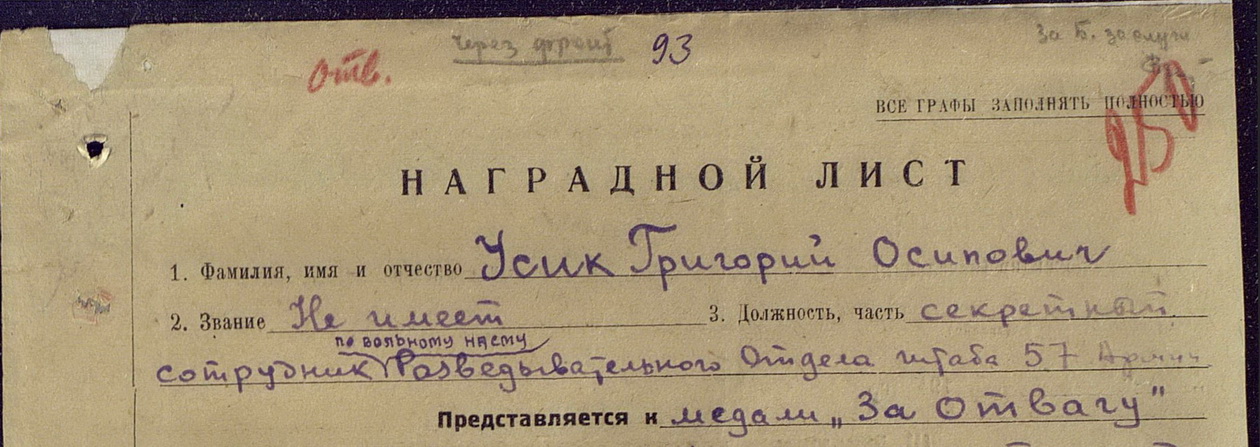 через фронт 93 За Б. заслуги
Отв.
ВСЕ ГРАФЫ ЗАПОЛНЯТЬ ПОЛНОСТЬЮ
НАГРАДНОЙ ЛИСТ
1. Фамилия, имя и отчество Усик Григорий Осипович
2. Звание Не имеет 3. Должность, часть секретный
по вольному найму
сотрудник Разведывательного Отдела штаба 57 Армии
Представляется к медали „За Отвагу"